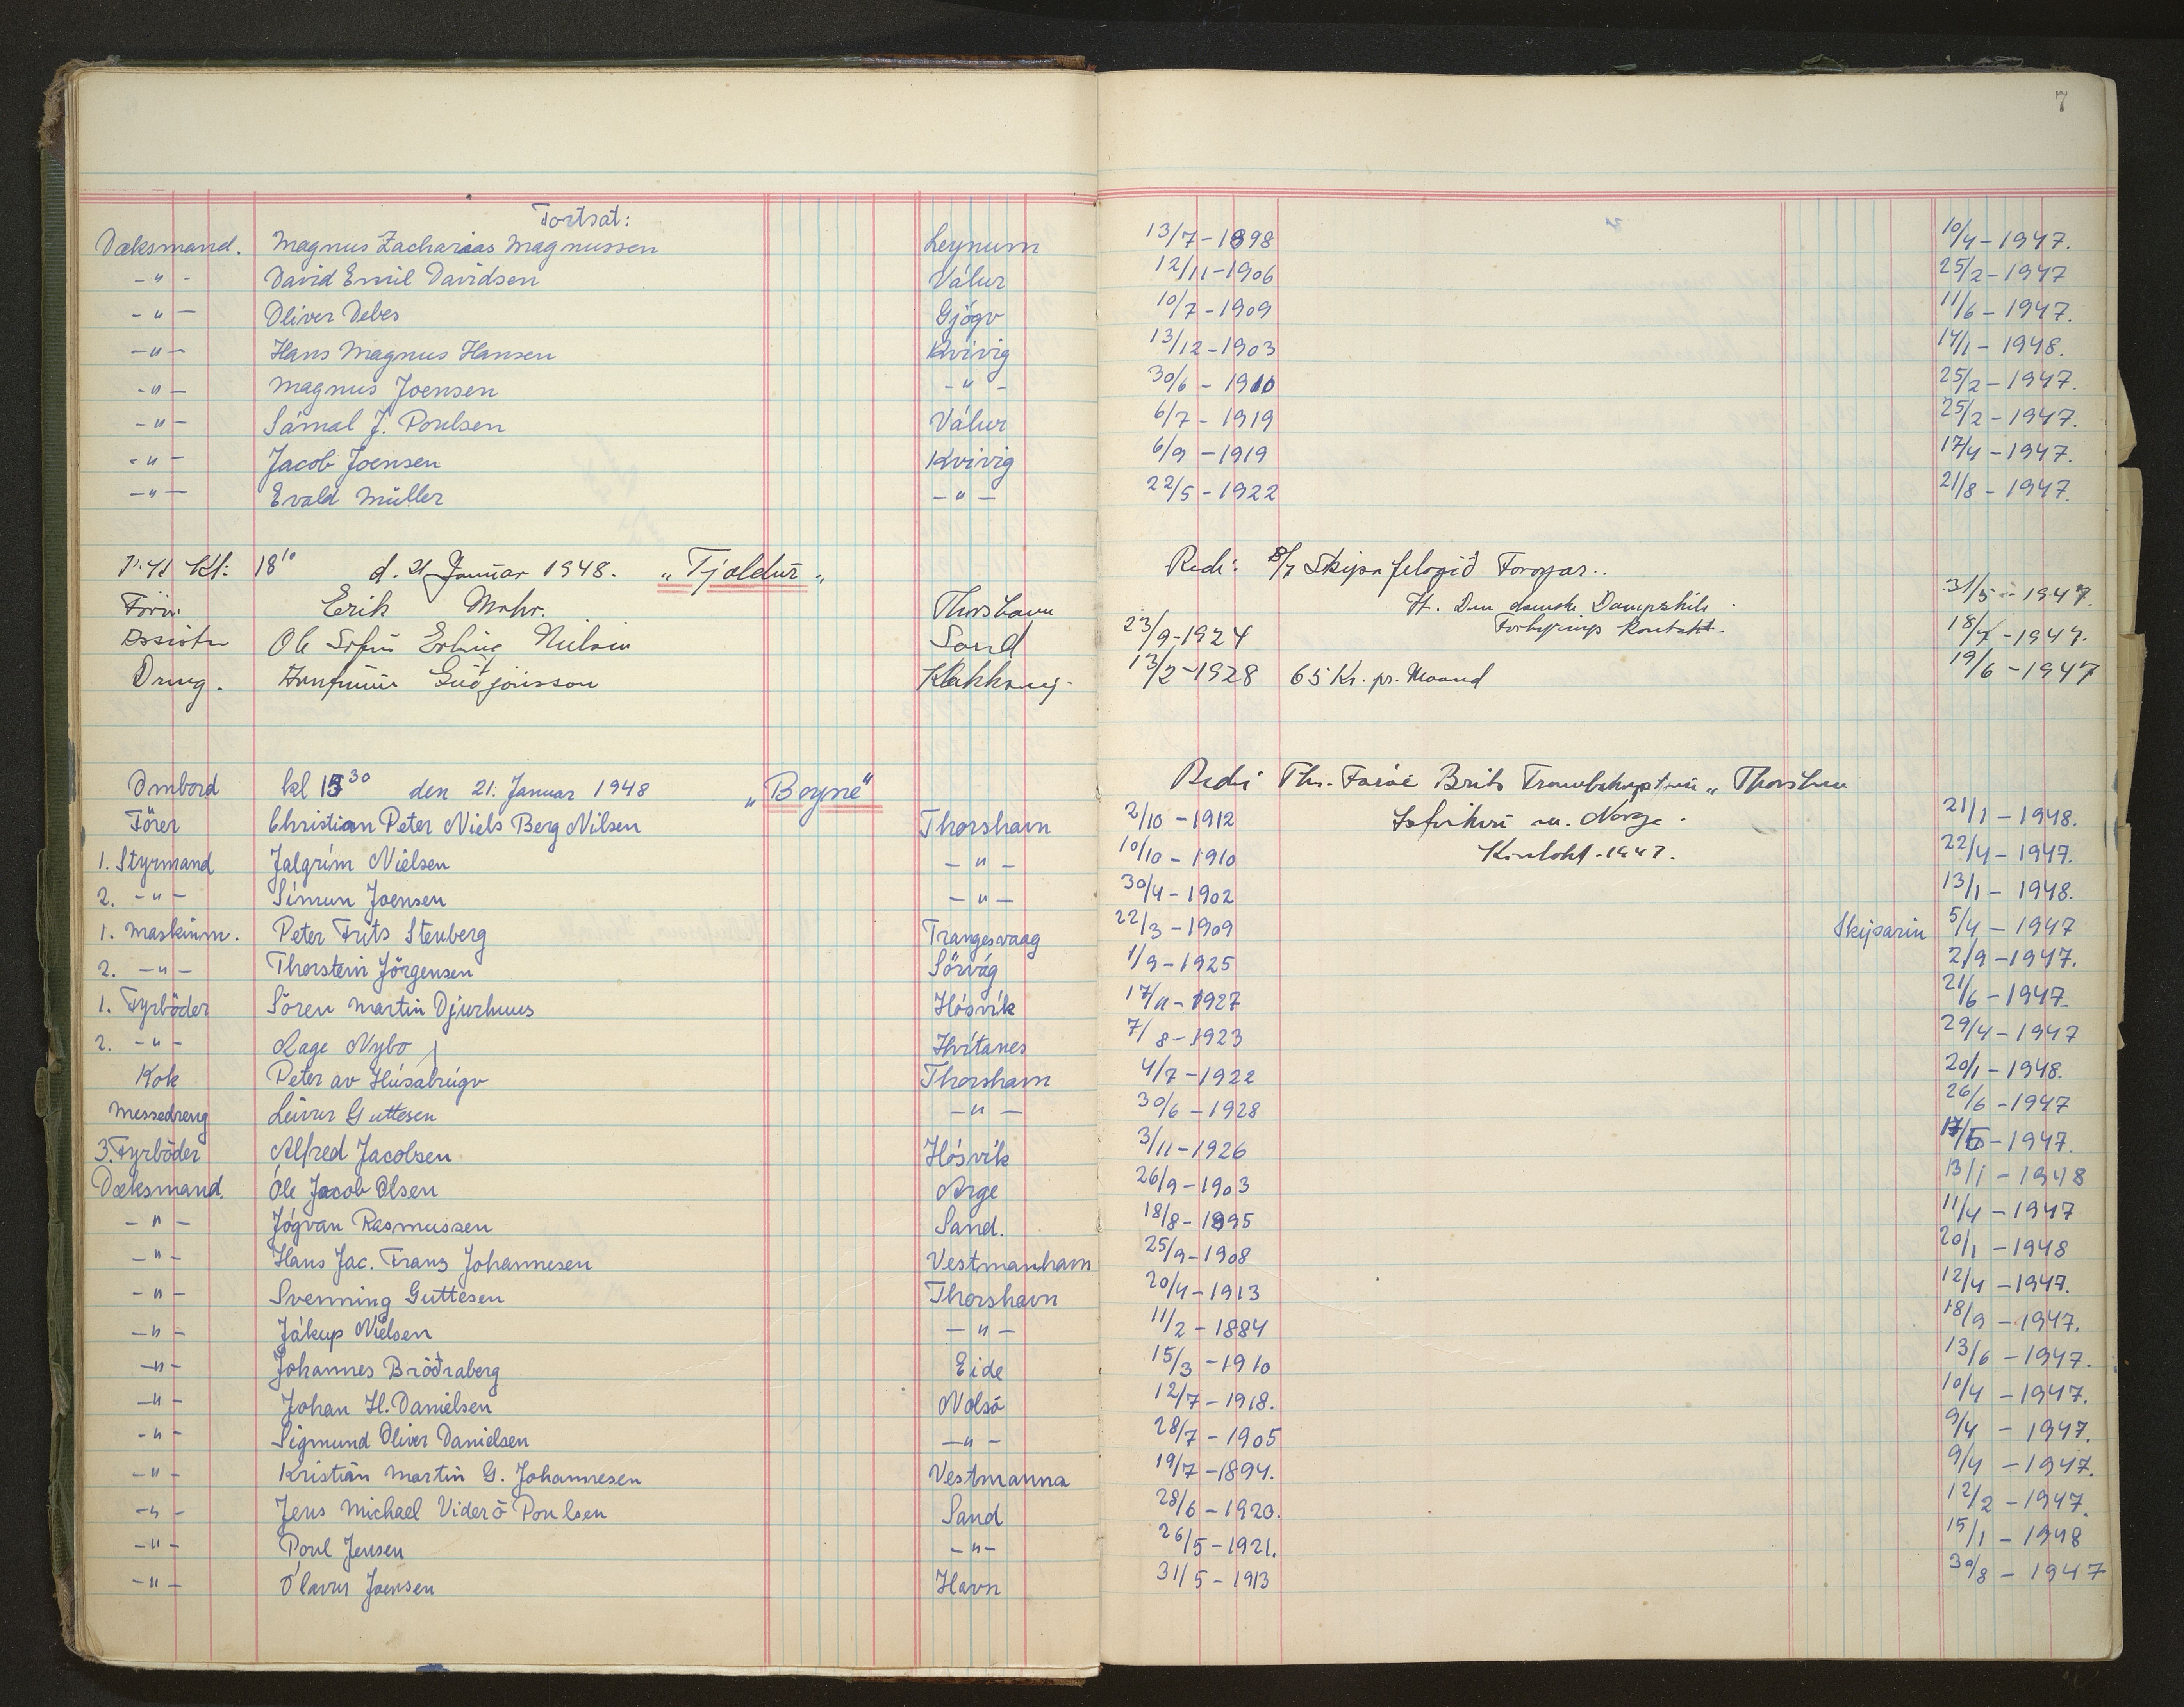 7
Fortsat:
Dæksmand. Magnus Zacharias Magnussen Leynum 13/7-1898 10/4-1947.
-"- David Emil Davidsen Válur 12/11-1906 25/2-1947
-"- Oliver Debes Gjógv 10/7-1909 11/6-1947.
-"- Hans Magnus Hansen Kvivig 13/12-1903 14/1-1948.
-"- Magnus Joensen -"- 30/6-1910 25/2-1947.
-"- Sámal J. Poulsen Válur 6/7-1919 25/2-1947.
-"- Jacob Joensen Kvivig 6/9-1919 17/4-1947.
-"- Evald Müller -"- 22/5-1922 21/8-1947.
Kl: 18 10 d. 21 Januar 1948. "Tjaldur" Redi: Skipafelagið Føroyar..
Erik Mohr. Thorshavn Den danske Dampskibs 31/5-1947.
Ole Erling Nielsen Sand 23/9-1924 18/7-1947.
Dreng. Guðjónsson Klakksvig. 13/2-1928 65 Kr. pr. Maaned 19/6-1947
Ombord kl 15 30 den 21. Januar 1948 "Boyne" Redi Thorshavn
Förer Christian Peter Niels Berg Nilsen Thorshavn 2/10-1912 Norge. 21/1-1948.
1. Styrmand Jalgrím Nielsen -"- 10/10-1910 1947. 22/4-1947.
2. -"- Símun Joensen -"- 30/4-1902 13/1-1948.
1. Maskinm. Peter Frits Stenberg Trangesvaag 22/3-1909 Skiparin 5/4-1947
2. -"- Thorstein Jörgensen Sörvág 1/9-1925 2/9-1947.
1. Fyrböder Sören Martin Djurhuus Hósvík 17/11-1927 21/6-1947
2. -"- Aage Nybo Hvítanes 7/8-1923 29/4-1947
Kok Peter av Húsabrúgv Thorshavn 4/7-1922 20/1-1948.
Messedreng Leivur Guttesen -"- 30/6-1928 26/6-1947
3. Fyrböder Alfred Jacobsen Hósvík 3/11-1926 -1947.
Dæksmand. Óle Jacob Olsen Arge 26/9-1903 13/1-1948
-"- Jógvan Rasmussen Sand. 18/8-1895 11/4-1947
-"- Hans Jac. Frans Johannesen Vestmanhavn 25/9-1908 20/1-1948
-"- Svenning Guttesen Thorshavn 20/4-1913 12/4-1947.
-"- Jákup Nielsen -"- 11/2-1884 18/9-1947.
-"- Johannes Bröðraberg Eide 15/3-1910 13/6-1947.
-"- Johan H. Danielsen Nolsö 12/7-1918. 10/4-1947.
-"- Sigmund Oliver Danielsen -"- 28/7-1905 9/4-1947.
-"- Kristian Martin G. Johannesen Vestmanna 19/7-1894. 9/4-1947.
-"- Jens Michael Viderö Poulsen Sand 28/6-1920. 12/2-1947.
-"- Poul Jensen -"- 26/5-1921. 15/1-1948
-"- Ólavur Joensen Havn 31/5-1913 30/8-1947